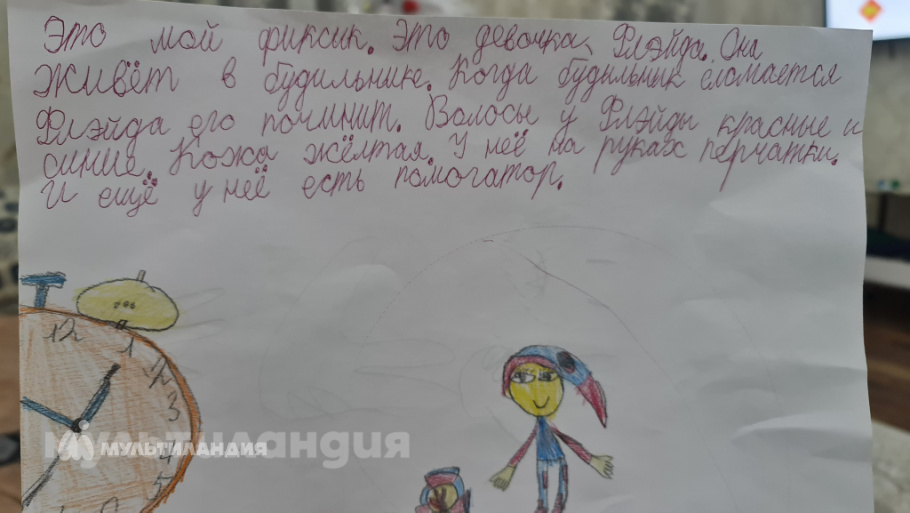 Это мой фиксик. Это девочка, Флэйда. Она
живёт в будильнике. Когда будильник сломается
Флэйда его починит. Волосы у Флэйды красные и
синие. Кожа жёлтая. У неё на руках перчатки.
И ещё у неё есть помогатор.
12
1
2
3
4
5
мультиландия
МУЛЬТИЛАНДИЯ